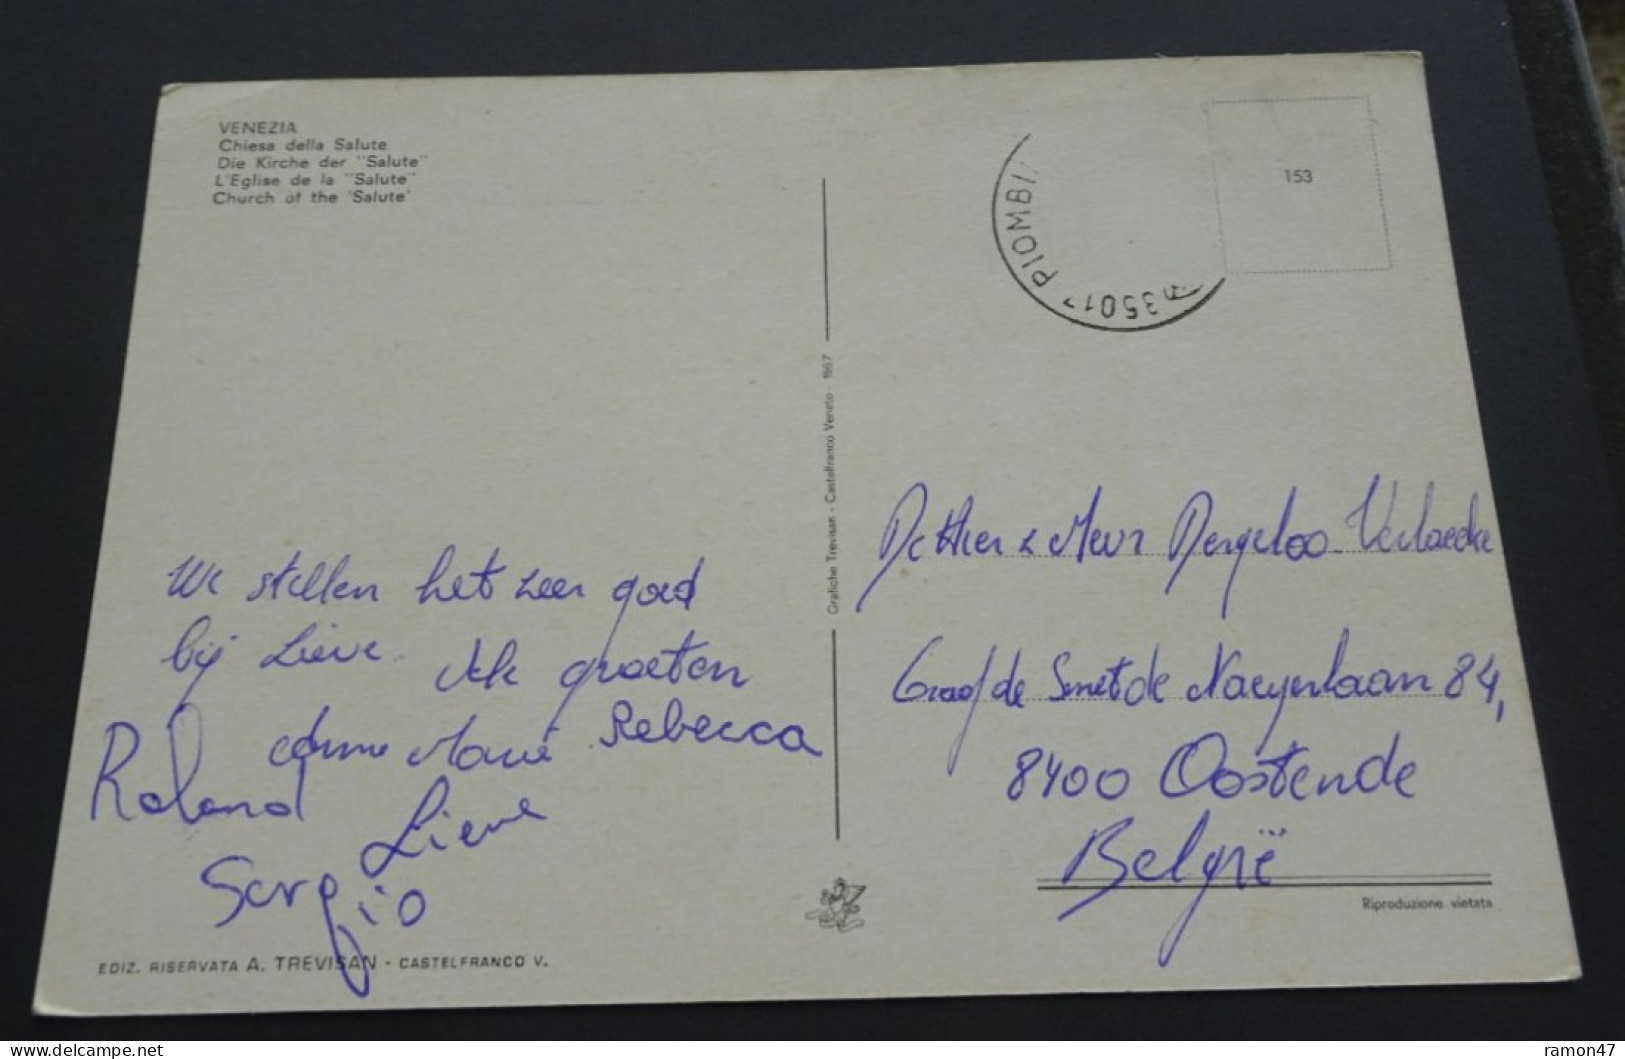 VENEZIA
Chiesa della Salute
Die Kirche der "Salute"
L'Eglise de la "Salute"
Church of the "Salute"
We stellen het zeer goed
bij Lieve. Vele groeten
Roland Anne Marie Rebecca
Lieve
Sergio
EDIZ. RISERVATA A. TREVISAN - CASTELFRANCO V.
Grafiche Trevisan - Castelfranco Veneto - 1967
PIOMBI
3501
153
& Mevr Dergeloo Verlaecke
Graaf de Smet de Naeyerlaan 84,
8400 Oostende
België
Riproduzione vietata
ramon47